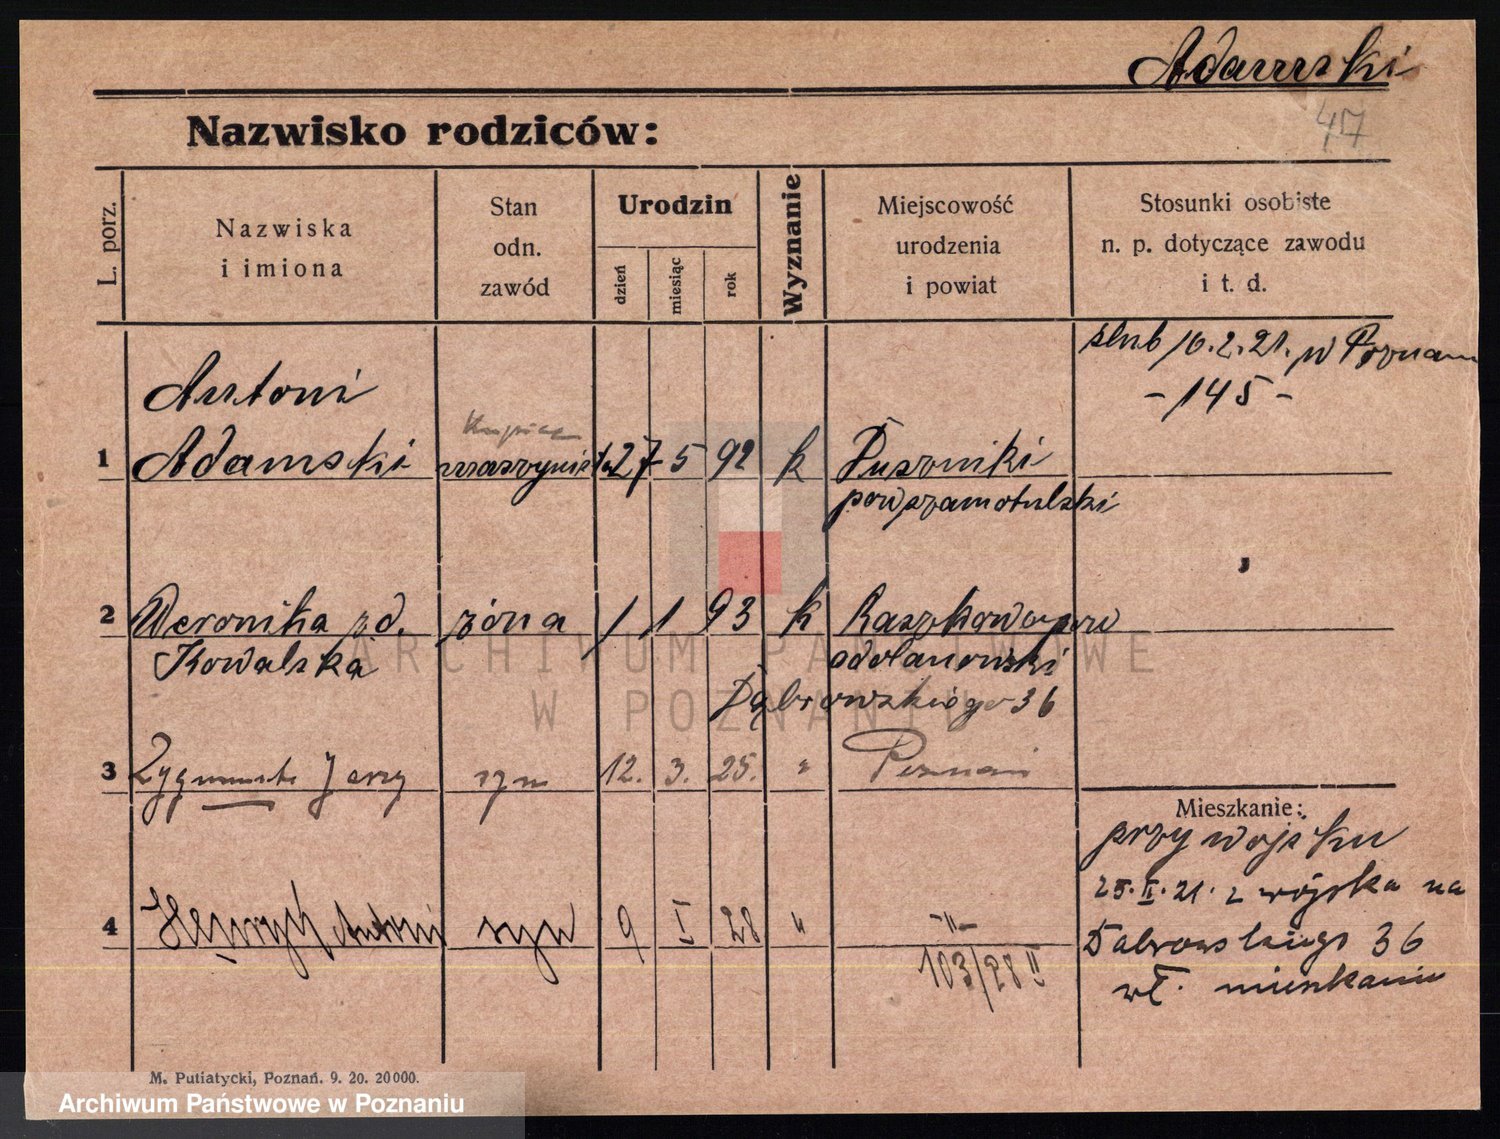 Adamski
47
Nazwisko rodziców:
L. porz.
Nazwiska
i imiona
Stan
odn.
zawód
Urodzin
dzień
miesiąc
rok
Wyznanie
Miejscowość
urodzenia
i powiat
Stosunki osobiste
n. p. dotyczące zawodu
i t. d.
ślub 16.2.21. w Poznani
- 145 -
Antoni
Kupiec
1 Adamski maszynista 27 5 92 k Duszniki
pow szamotulski
2 Weronika zd. żona 1 1 93 k Raszkowo pow
Kowalska odolanowski
Dąbrowskiego 36
3 Zygmunt Jerzy syn 12. 3. 25. " Poznań
Mieszkanie:
przy wojsku
25.II.21. z wojska na
4 Henryk Antoni syn 9 I 28 " -"-
Dąbrowskiego 36
103/28 II
wł. mieszkanie
M. Putiatycki, Poznań. 9. 20. 20000.
ARCHIWUM PAŃSTWOWE
W POZNANIU
Archiwum Państwowe w Poznaniu